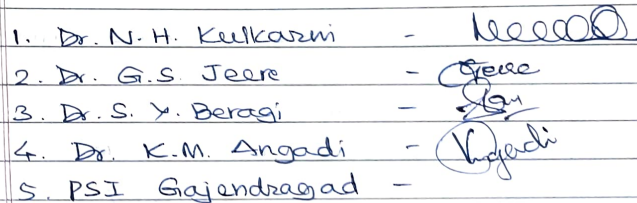 1. Dr. N. H. Kulkarni -
2. Dr. G.S. Jeere - Gjeere
3. Dr. S. Y. Beragi -
4. Dr. K.M. Angadi - Kangadi
5. PSI Gajendragad -